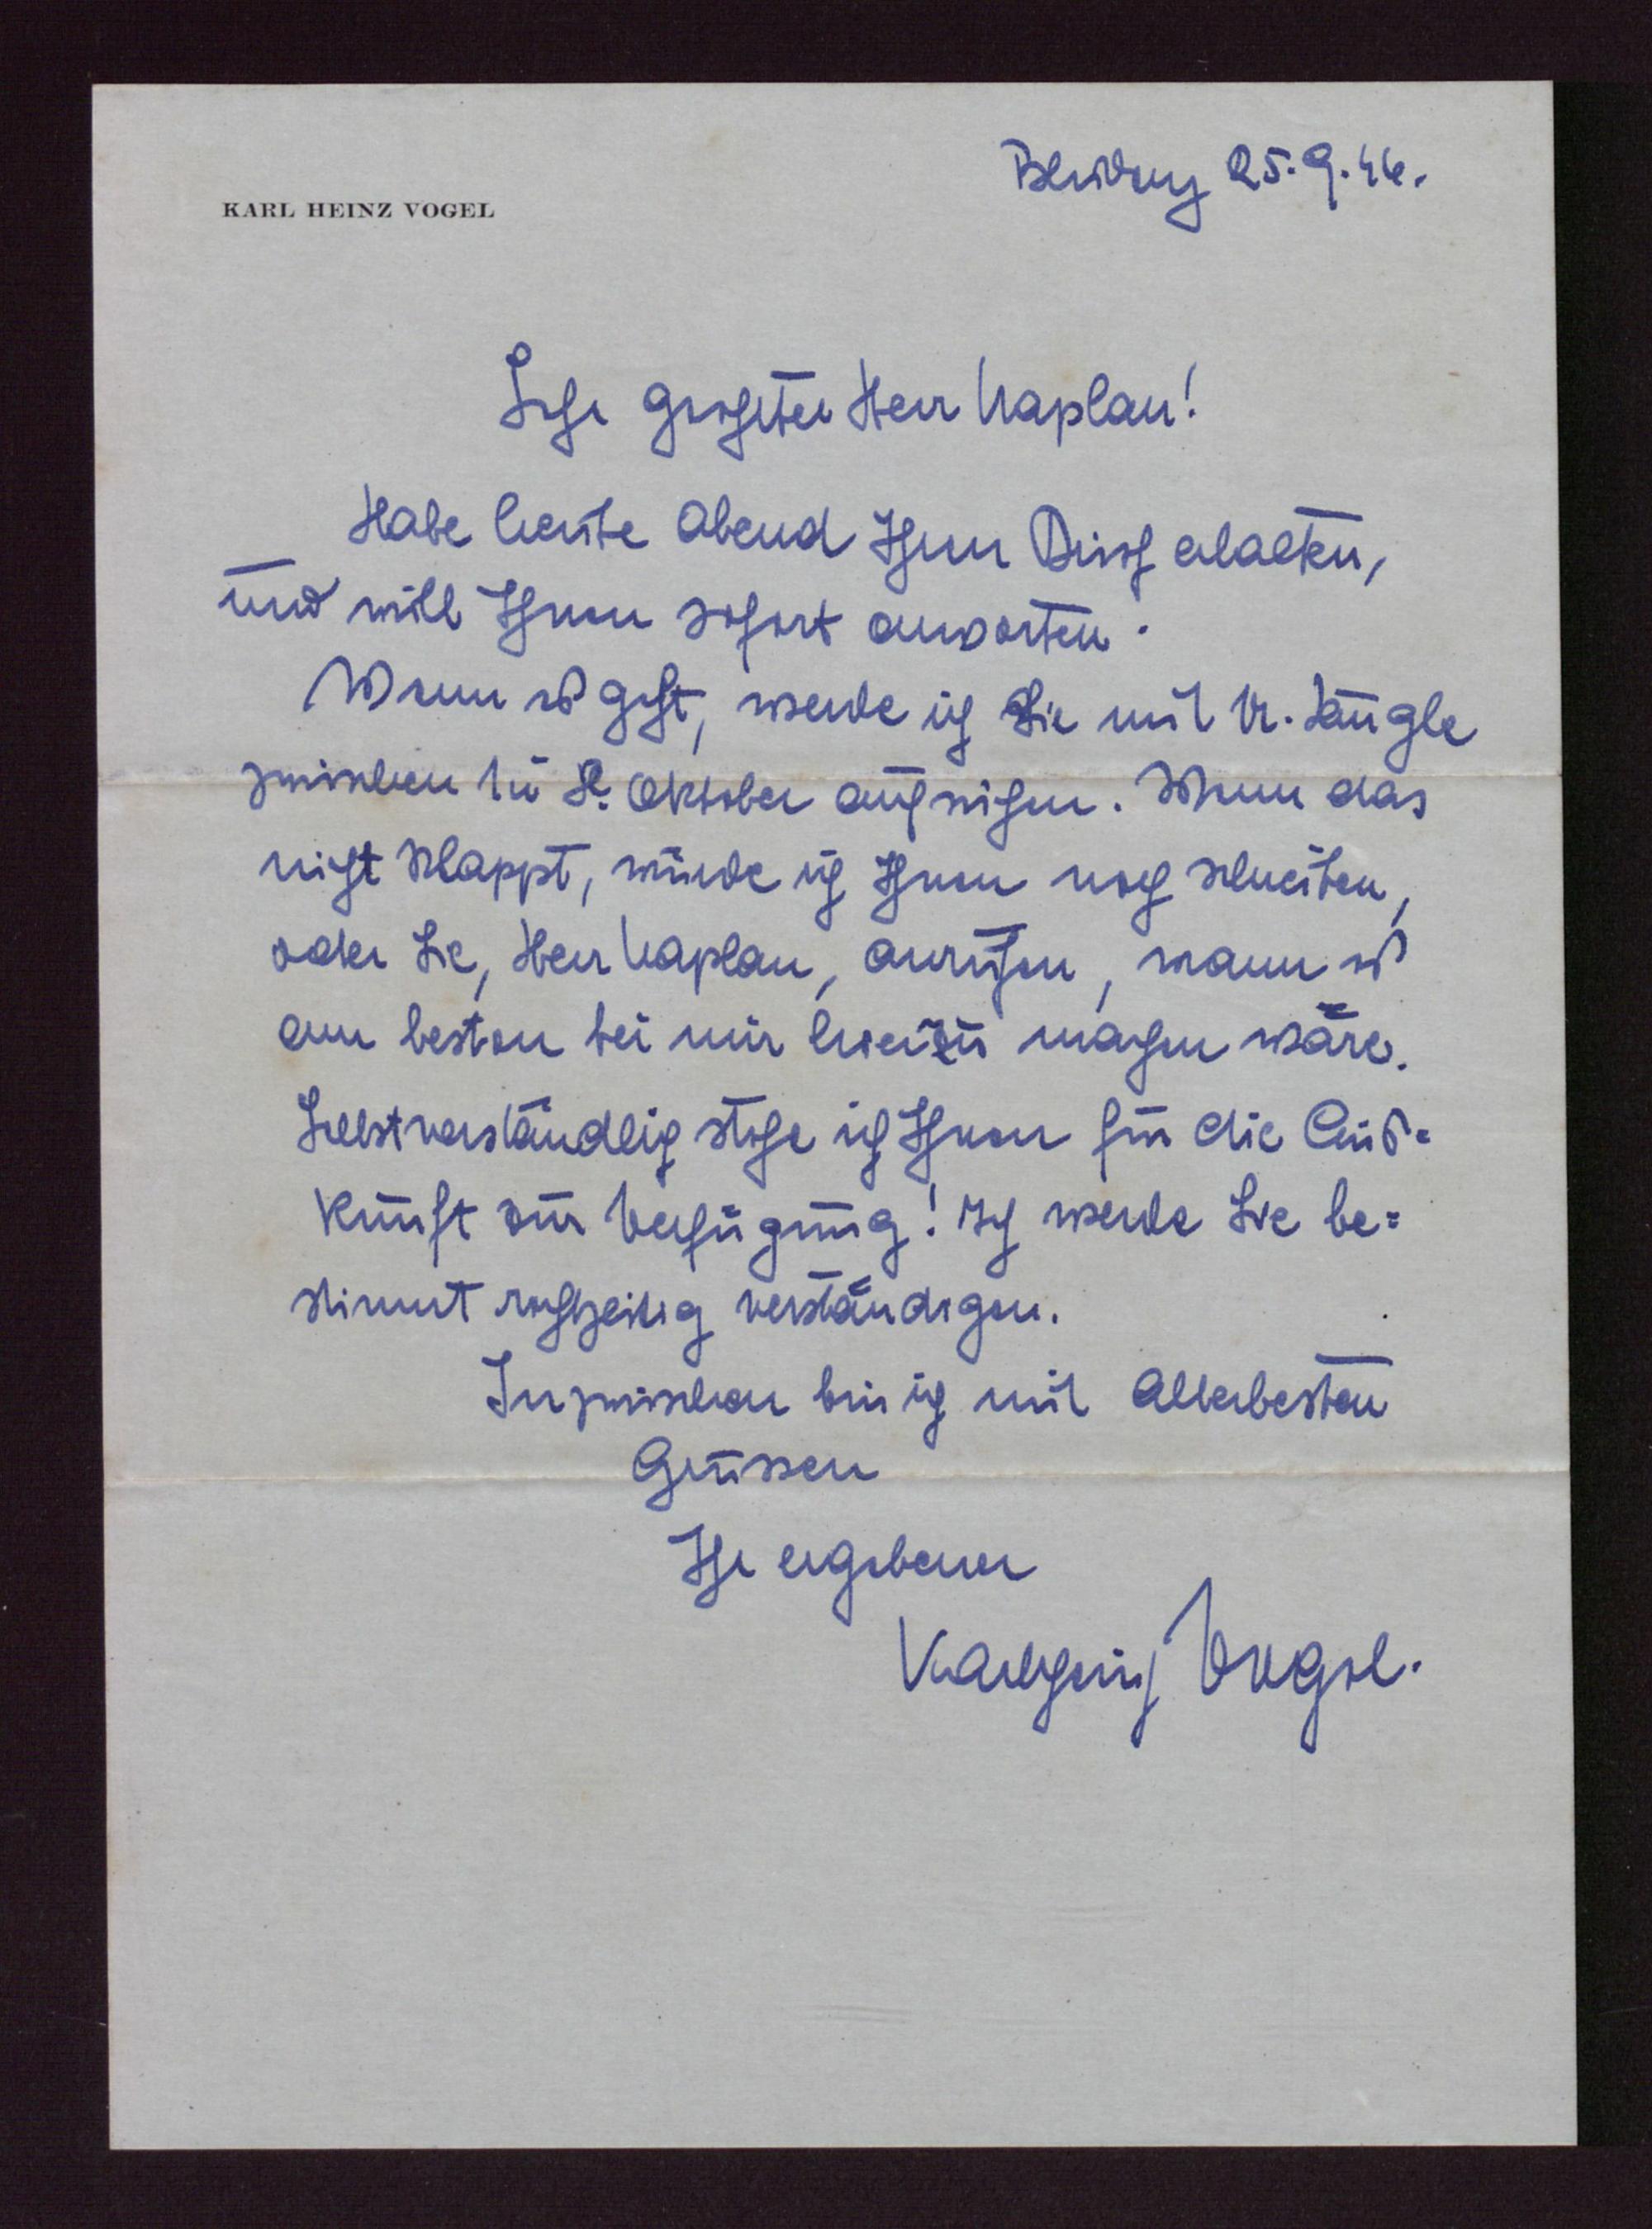 KARL HEINZ VOGEL
Bludenz 25.9.46.
Sehr geehrter Herr Kaplan!
Habe heute Abend Ihren Brief erhalten,
und will Ihnen sofort anworten.
Wenn es geht, werde ich Sie mit Dr. Längle
zwischen Oktober aufsuchen. Wenn das
nicht klappt, würde ich Ihnen noch schreiben,
oder Sie, Herr Kaplan, anrufen, wann es
am besten bei mir hier zu machen wäre.
Selbstverständlich stehe ich Ihnen für die Aus=
kunft zur Verfügung! Ich werde Sie be=
stimmt rechtzeitig verständigen.
Inzwischen bin ich mit allerbesten
Grüssen
Ihr ergebener
Karlheinz Vogel.